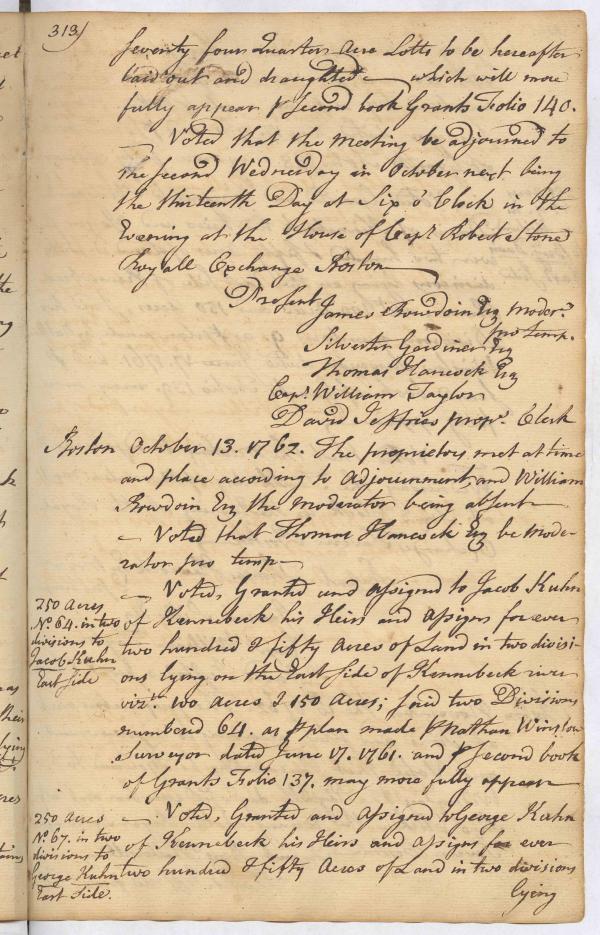 313)
seventy four Quarter Acre Lotts to be hereafter
laid out and draughted — which will more
fully appear ⅌ Second book Grants Folio 140.
— Voted that the meeting be adjourned to
the second Wednesday in October next being
the thirteenth Day at Six o' Clock in the
Evening at the House of Capt. Robert Stone
Royall Exchange Boston —
Present
James Bowdoin Esq moder.r
pro temp.
Silvester Gardiner Esq
Thomas Hancock Esq
Capt. William Taylor
David Jeffries propr. Clerk
Boston October 13. 1762. The proprietors met at time
and place according to Adjournment, and William
Bowdoin Esq the moderator being absent
— Voted that Thomas Hancock Esq be mode-
rator pro temp —
— Voted, Granted and assigned to Jacob Kuhn
of Kennebeck his Heirs and assigns for ever
two hundred & fifty Acres of Land in two divisi-
ons lying on the East side of Kennebeck river
vizt. 100 acres & 150 acres; said two Divisions
numbered 64. as ⅌ plan made ⅌ Nathan Winslow
Surveyor dated June 17. 1761. and ⅌ Second book
of Grants Folio 137. may more fully appear
— Voted, Granted and assigned to George Kuhn
of Kennebeck his Heirs and assigns for ever
two hundred & fifty Acres of Land in two divisions
lying
250 Acres
No. 64. in two
divisions to
Jacob Kuhn
East side
250 Acres
No. 67. in two
divisions to
George Kuhn
East Side.